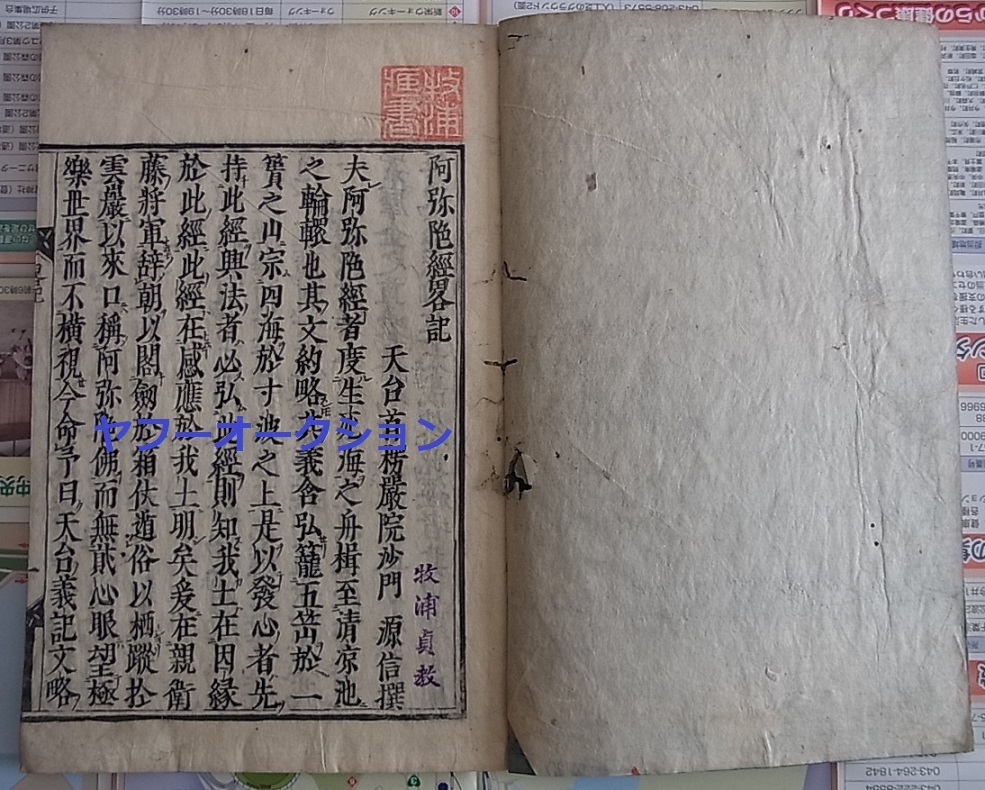 阿弥陁經畧記
天台首楞嚴院沙門 源信撰
夫阿弥陁經者度生死海之舟楫至清凉池
之輪轅也其文約略其義含弘籠五嵩於一
簣之山宗四海於寸波之上是以發心者先
持此經興法者必弘此經則知我土在因縁
於此經此經在感應於我土明矣爰在親衛
藤將軍辞朝以閣劔於箱伏遁俗以栖蹤於
雲巖以來口稱阿弥陁佛而無貳心眼望極
樂世界而不横視今命予曰天台義記文略
牧浦貞教
牧浦
書
ヤフーオークション